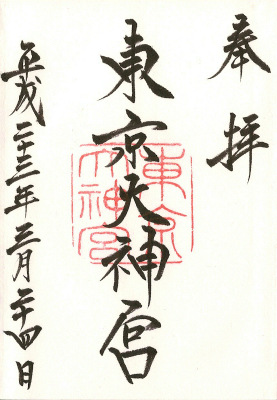 奉拝
東京大神宮
平成二十三年三月二十四日
東京
大神宮